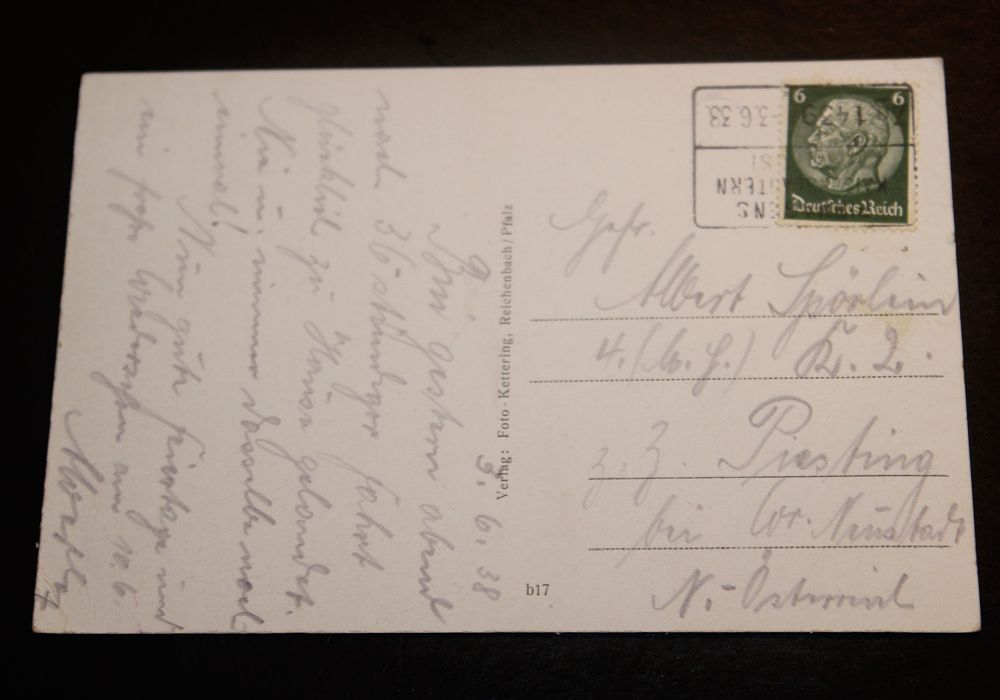 3. 6. 38
Bin gestern abend
nach 36 stündiger Fahrt
glücklich zu Hause gelandet.
Nie u. nimmer dasselbe noch
einmal!
Nun gute Feiertage und
ein frohes Wiedersehen am 10.6.
Verlag: Foto-Kettering, Reichenbach/Pfalz
b17
6 6
Deutsches Reich
-3.6.38
1479
Gefr.
Albert Spörlein
4. (M.G.) K. 2.
z. Z. Piesting
bei Wr. Neustadt
N.-Österreich